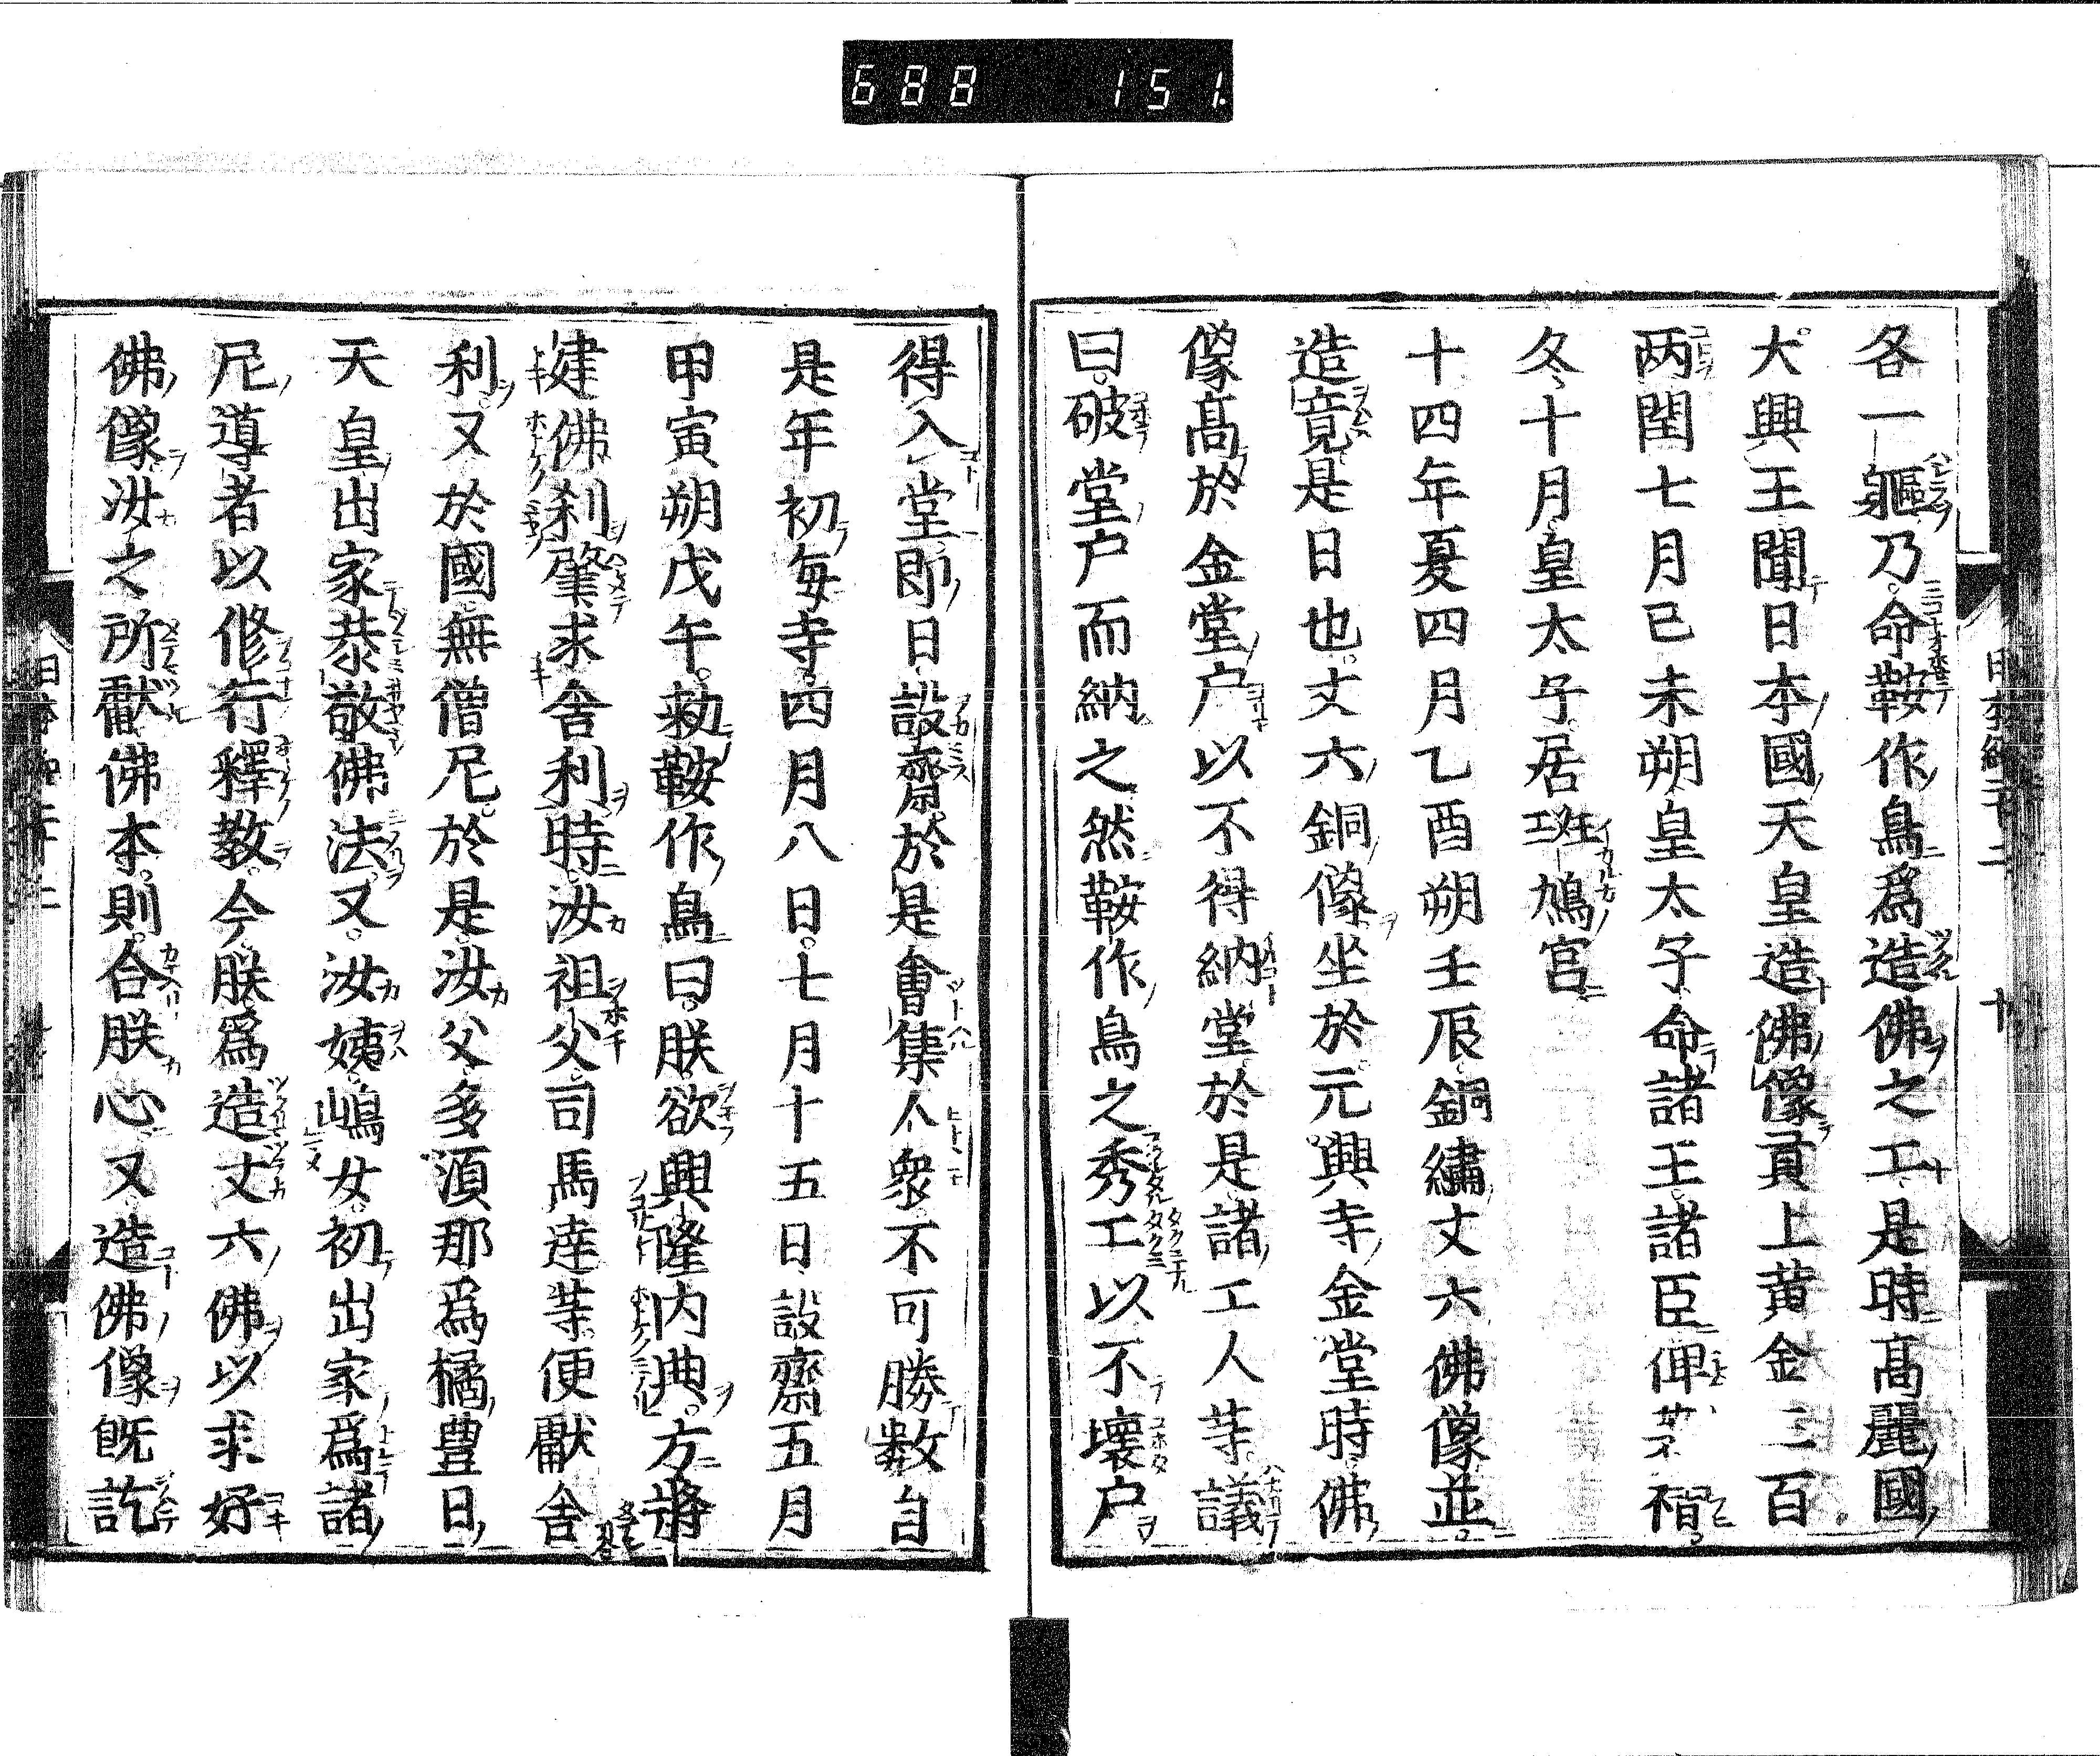 688 151
各一軀乃命鞍作鳥爲造佛之工是時髙麗國
大興王聞日本國天皇造佛像貢上黄金三百
两閏七月已未朔皇太子命諸王諸臣俾着褶
冬十月皇太子居斑鳩宮
十四年夏四月乙酉朔壬辰銅繡丈六佛像並
造竟是日也丈六銅像坐於元興寺金堂時佛
像髙於金堂户以不得納堂於是諸工人等議
曰破堂户而納之然鞍作鳥之秀工以不壞户
得入堂即日設齋於是會集人衆不可勝數自
是年初毎寺四月八日七月十五日設齋五月
甲寅朔戊午勑鞍作鳥曰朕欲興隆内典方將
建佛刹肇求舍利時汝祖父司馬達等便獻舍
利又於國無僧尼於是汝父多須那爲橘豊日
天皇出家恭敬佛法又汝姨嶋女初出家爲諸
尼導者以修行釋教今朕爲造丈六佛以求好
佛像汝之所獻佛本則合朕心又造佛像既訖